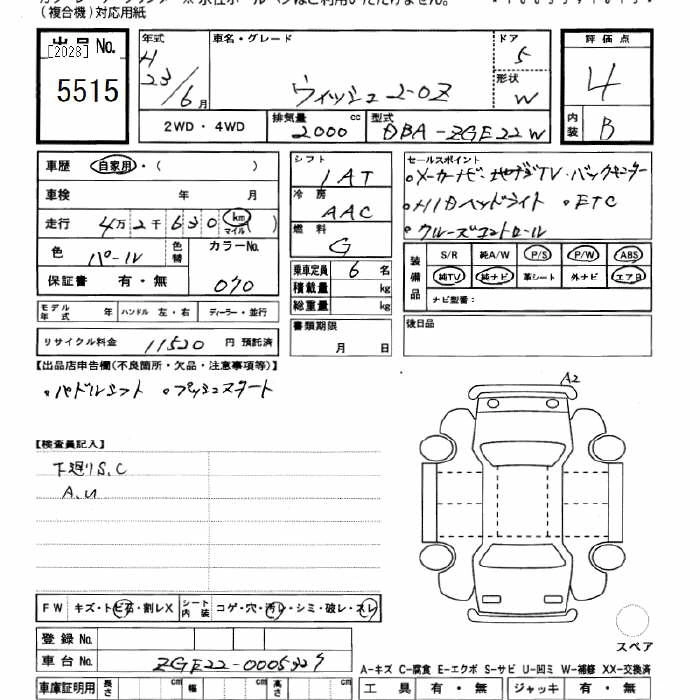 （複合機）対応用紙
出品 No. [2028] 5515
年式 H 23/6 月
車名・グレード ウィッシュ 2-0Z
ドア 5
形状 W
評価点 4
内装 B
2WD・4WD
排気量 2000 cc
型式 DBA-ZGE22W
車歴 自家用・( )
車検 年 月
走行 4万2千630 km マイル( )
色 パール 色替
カラーNo. 070
保証書 有・無
シフト IAT
冷房 AAC
燃料 G
乗車定員 6 名
積載量 kg
総重量 kg
セールスポイント
•メーカーナビ・地デジTV・バックモニター
•HIDヘッドライト •ETC
•クルーズコントロール
装備品 S/R 純A/W P/S P/W ABS
純TV 純ナビ 革シート 外ナビ エアB
ナビ型番：
モデル年式 年 ハンドル 左・右 ディーラー・並行
書類期限 月 日
後日品
リサイクル料金 11520 円 預託済
【出品店申告欄(不良箇所・欠品・注意事項等)】
•パドルシフト •プッシュスタート
A2
【検査員記入】
下廻りS.C
A.U
FW キズ・トビ石・割レX シート内装 コゲ・穴・汚レ・シミ・破レ・スレ
登録 No.
車台 No. ZGE22-0005
スペア
A-キズ C-腐食 E-エクボ S-サビ U-凹ミ W-補修 XX-交換済
車庫証明用 長さ cm 幅 cm 高さ cm
工具 有・無 ジャッキ 有・無